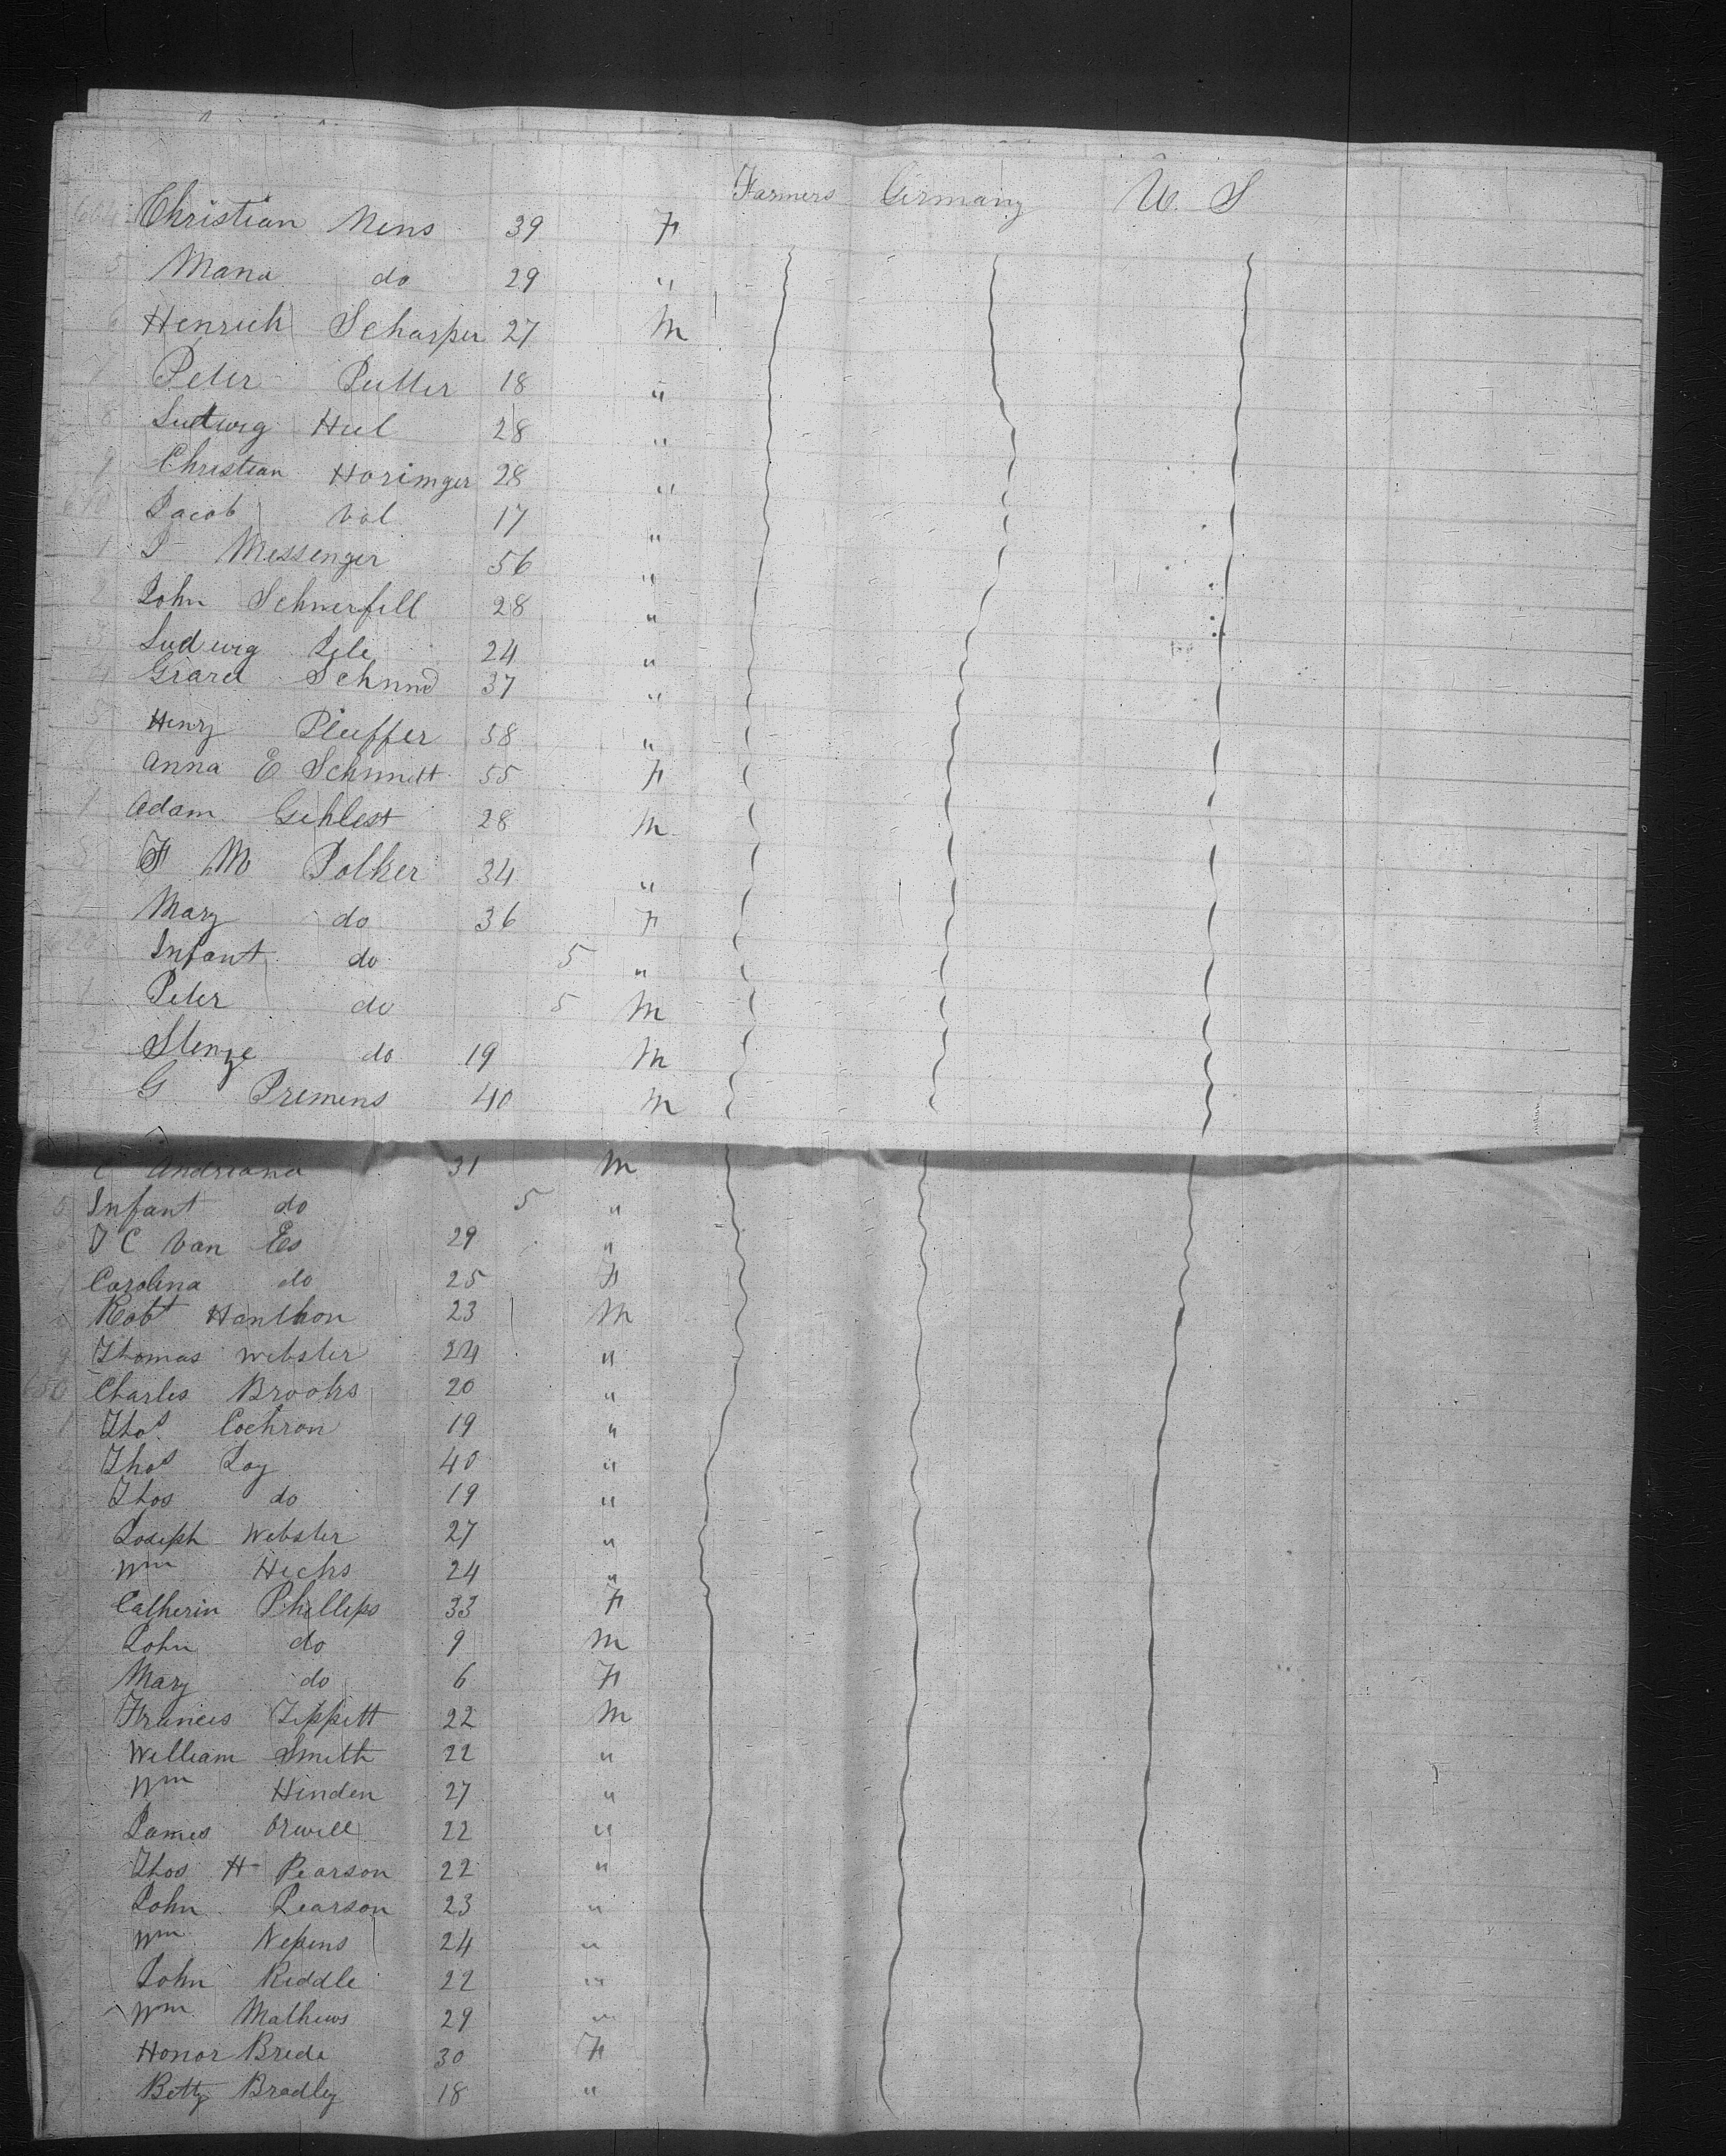 Farmers Germany U. S
604 Christian Mens 39 F
5 Mana do 29 "
6 Henrich Scharper 27 M
7 Peter Putter 18 "
8 Ludwig Hul 28 "
9 Christian Horimger 28 "
610 Jacob Vol 17 "
1 J Messenger 56 "
2 John Schnerfell 28 "
3 Ludwig Isle 24 "
4 Grard Schmid 37 "
5 Henry Pleuffer 58 "
Anna E Schmitt 55 F
Adam Gehlest 28 M
8 F M Polker 34 "
Mary do 36 F
620 Infant do 5 "
1 Peter do 5 M
2 Stenze do 19 M
G Premens 40 M
C Andriana 31 M
5 Infant do 5 "
6 J C Van Es 29 "
Carolina do 25 F
Robt Hanthon 23 M
9 Thomas Webster 24 "
630 Charles Brooks 20 "
1 Thos Cochron 19 "
2 Thos Loy 40 "
Thos do 19 "
Joseph Webster 27 "
5 Wm Hicks 24 "
Catherin Phillips 33 F
John do 9 M
Mary do 6 F
Francis Tippett 22 M
William Smith 22 "
Wm Hinden 27 "
James Orwill 22 "
Thos H Pearson 22 "
John Pearson 23 "
Wm Nepens 24 "
John Riddle 22 "
Wm Mathews 29 "
Honor Brede 30 F
Betty Bradley 18 "